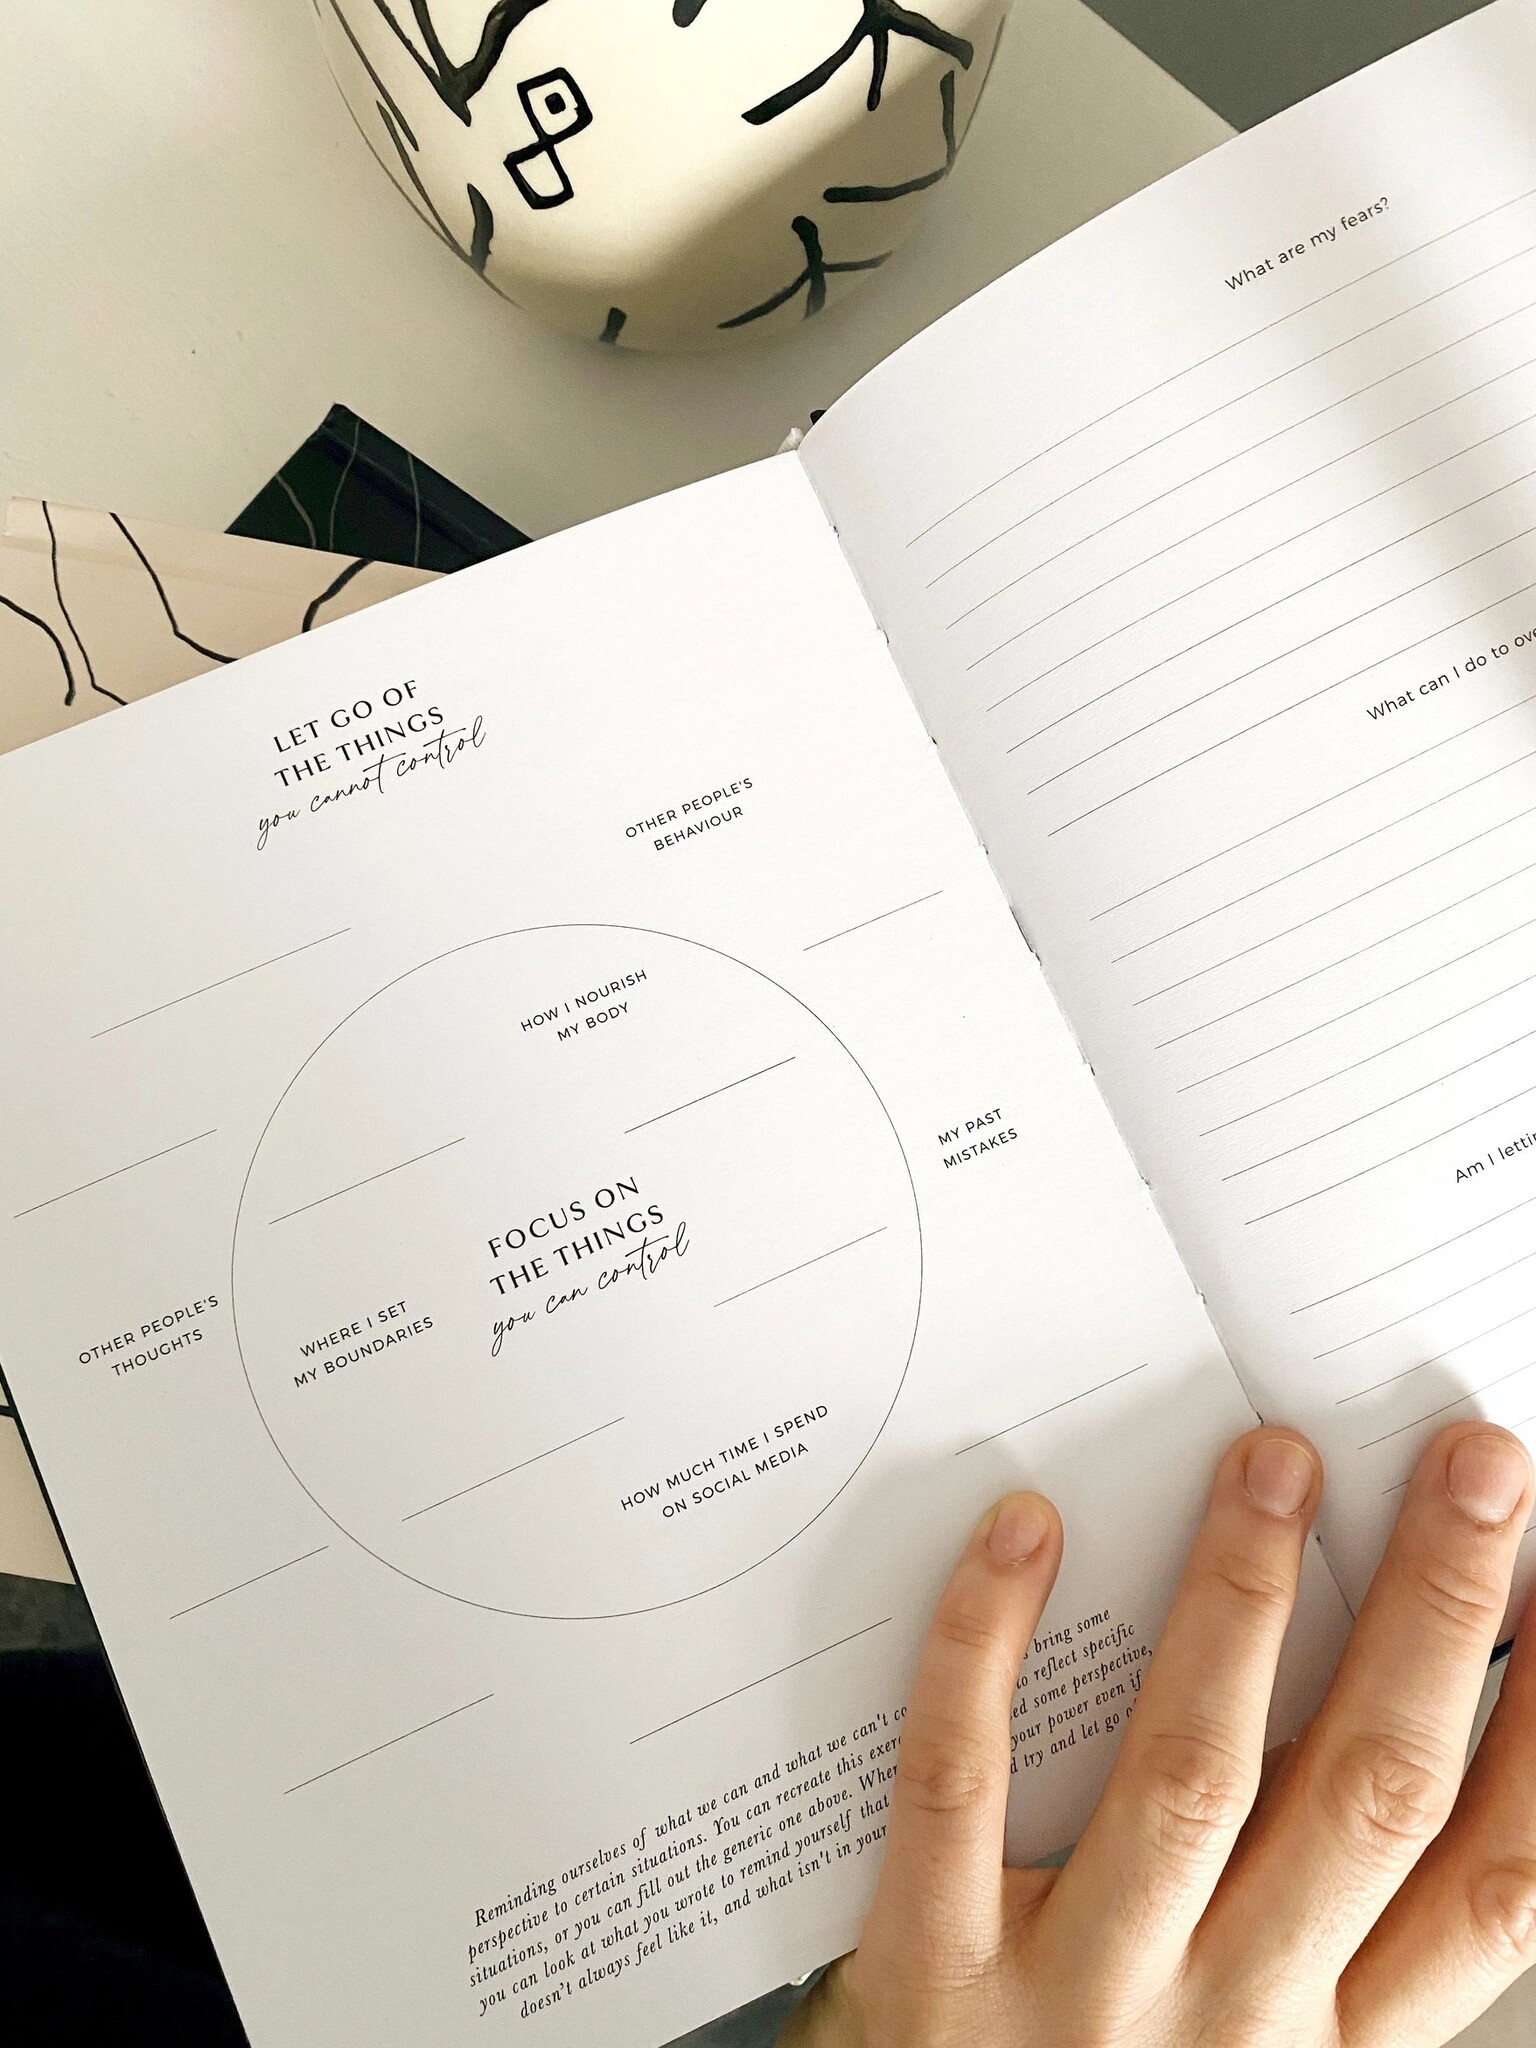 LET GO OF
THE THINGS
you cannot control
OTHER PEOPLE'S
BEHAVIOUR
HOW I NOURISH
MY BODY
MY PAST
MISTAKES
FOCUS ON
THE THINGS
you can control
OTHER PEOPLE'S
THOUGHTS
WHERE I SET
MY BOUNDARIES
HOW MUCH TIME I SPEND
ON SOCIAL MEDIA
Reminding ourselves of what we can and what we can't bring some
perspective to certain situations. You can recreate this to reflect specific
situations, or you can fill out the generic one above. some perspective,
you can look at what you wrote to remind yourself that your power even if
doesn't always feel like it, and what isn't in your try and let go
What are my fears?
What can I do to
Am I